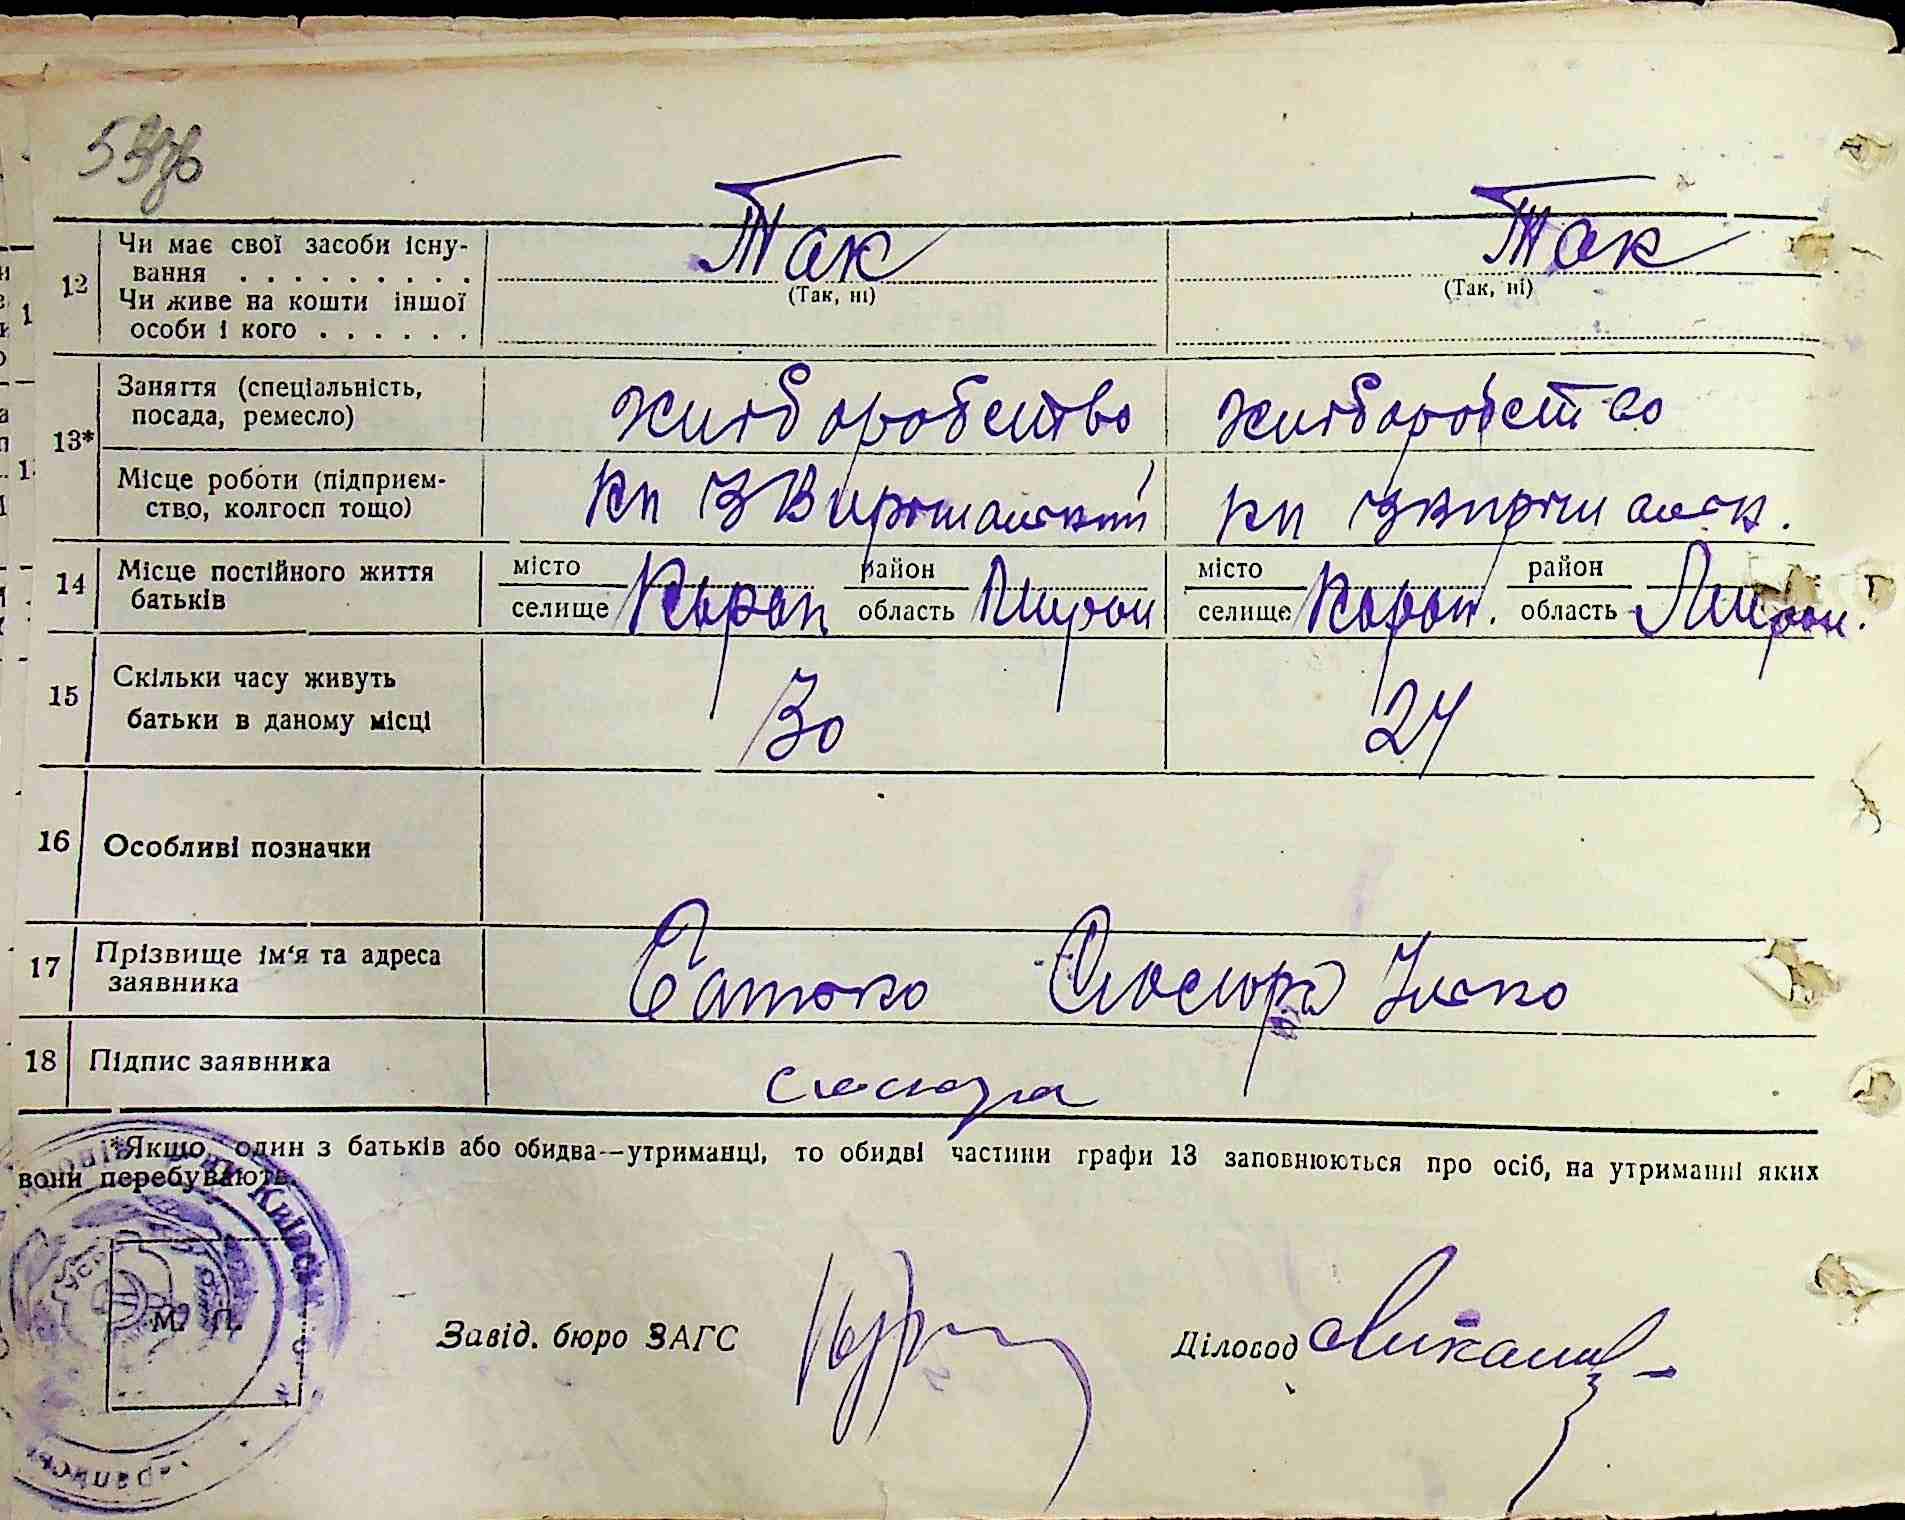 Так Так
12 Чи має свої засоби існу-
вання . . . . . . . . .
(Так, ні) (Так, ні)
Чи живе на кошти іншої
особи і кого . . . . . .
13* Заняття (спеціальність,
посада, ремесло) хліборобство хліборобство
Місце роботи (підприєм-
ство, колгосп тощо)
14 Місце постійного життя
батьків
місто район місто район
селище Карап. область Мирон селище Карап. область Мирон.
15 Скільки часу живуть
батьки в даному місці 30 24
16 Особливі позначки
17 Прізвище ім'я та адреса
заявника Батько Слюсюра Ілько
18 Підпис заявника слюсюра
*Якщо один з батьків або обидва—утриманці, то обидві частини графи 13 заповнюються про осіб, на утриманні яких
вони перебувають.
УСРР
М. П.
Завід. бюро ЗАГС Діловод